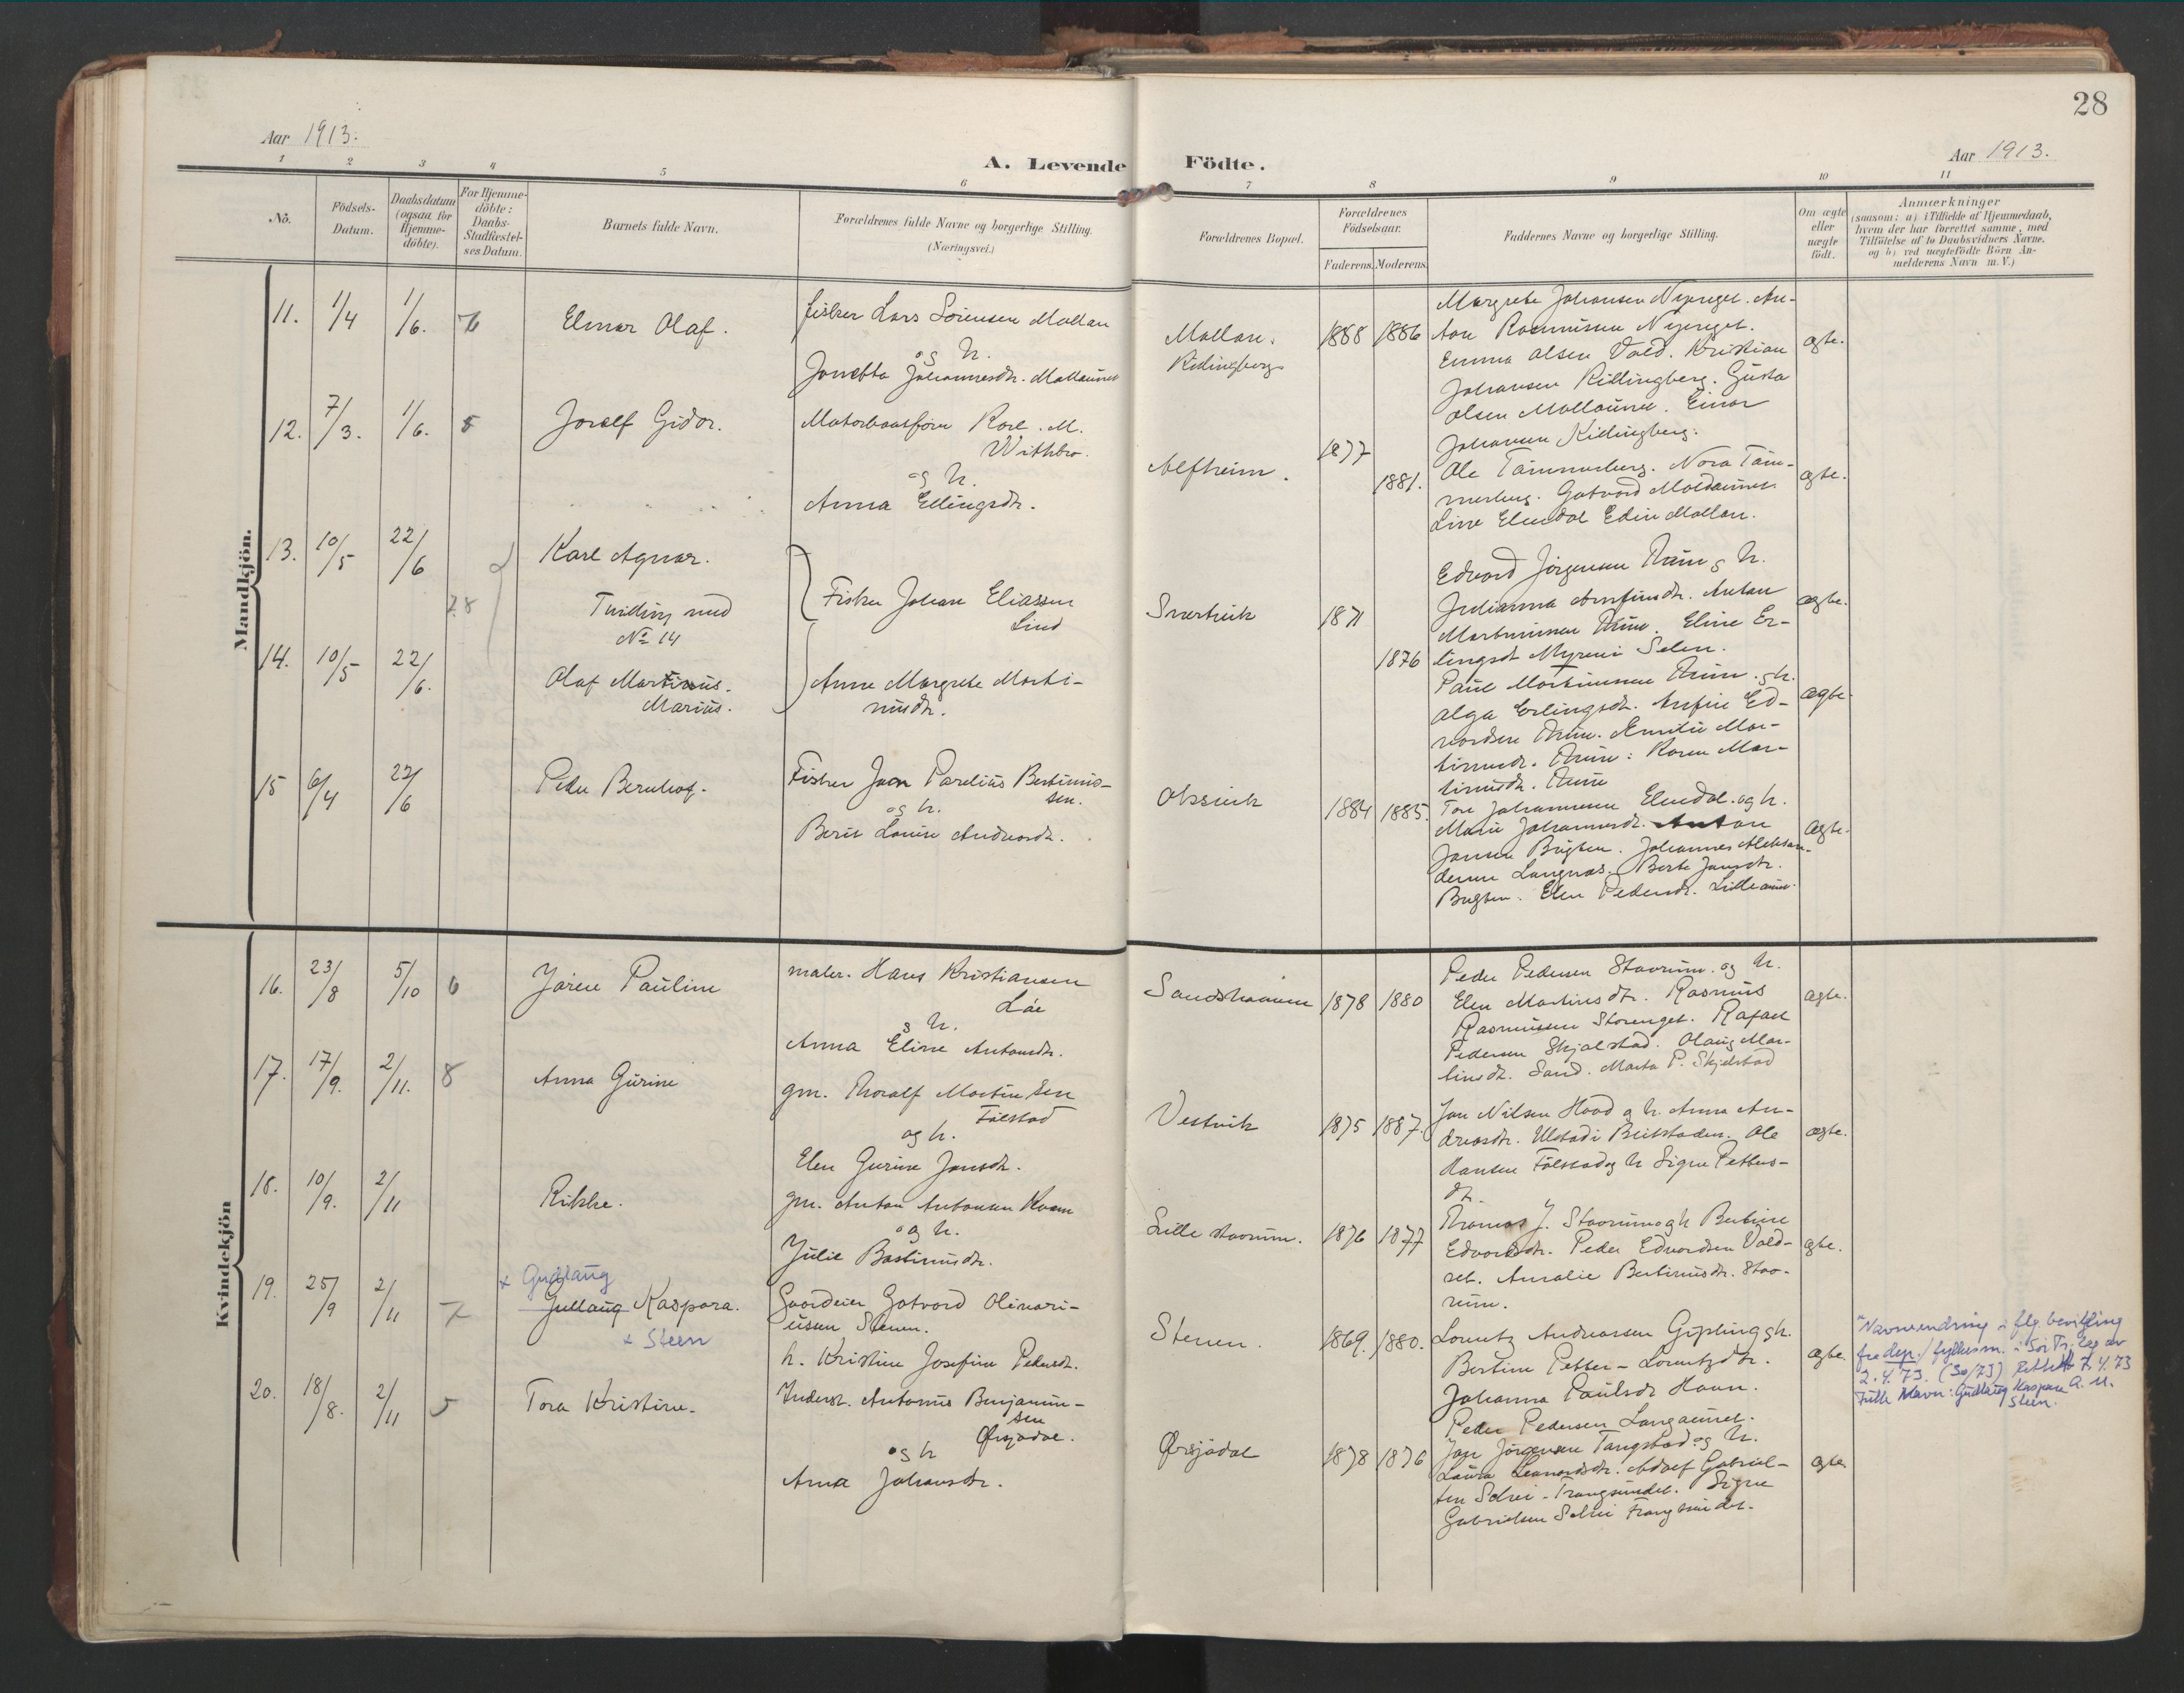 28
Aar 1913.
A. Levende Födte.
Aar 1913.
1 2 3 4 5 6 7 8 9 10 11
No.
Födsels-
Datum.
Daabsdatum
(ogsaa for
Hjemme-
döbte).
For Hjemme-
döbte:
Daabs-
Stadfæstel-
ses Datum.
Barnets fulde Navn.
Forældrenes fulde Navne og borgerlige Stilling.
(Næringsvei.)
Forældrenes Bopæl.
Forældrenes
Födselsaar.
Faderens. Moderens.
Faddernes Navne og borgerlige Stilling.
Om ægte
eller
uægte
födt.
Anmærkninger
(saasom: a) i Tilfælde af Hjemmedaab,
hvem der har forrettet samme, med
Tilföielse af to Daabsvidners Navne.
og b) ved uægtefödte Börn An-
melderens Navn m. V.)
Mandkjön.
11. 1/4 1/6. Elmar Olaf.
fisker Lars Sörensen Mollan
og h.
Jonetta Johannesdtr. Mollaunet
Mollan.
Kidlingberg
1888 1886
Margrete Johansen Nyenget. An-
ton Rasmussen Nyenget.
Emma Olsen Vold. Kristian
Johansen Kidlingberg. Gusta
Olsen Mollaunet. Einar
Johansen Kidlingberg.
ægte.
12. 7/3. 1/6. 5 Joralf Gidor.
Motorbaatförer Karl. M.
Withbro.
og h.
Anna Ellingsdtr.
Alfheim.
1877 1881.
Ole Tömmerberg. Nora Töm-
merberg. Gotvard Moldaunet.
Line Elvedal Edin Mollan.
ægte.
13. 10/5 22/6 Karl Agnar.
7.8
Tvilling med
No 14
Fisker Johan Eliassen
Lind
Snertvik 1871 1876
Edvard Jörgensen Duun og h.
Julianna Arnfinsdtr. Anton
Martinussen Duun. Eline Er-
lingsdt Myren i Selen.
ægte.
14. 10/5 22/6. Olaf Martinus.
Marius.
Anne Margrete Marti-
nusdtr.
Paul Martinussen Duun. og h.
Olga Erlingsdtr. Arnfin Ed-
vardsen Duun. Emilie Mar-
tinusdtr. Duun: Karen Mar-
tinusdtr. Duun
ægte
15 6/4 22/6 Peder Bernhof.
Fisker Jaen Parelius Bertinus-
sen.
og h.
Berit Louise Andreasdtr.
Oksvik
1884 1885.
Tore Johannesen Elvedal. og h.
Marie Johannesdt. Anton
Jansen Bugten. Johannes Aleksan-
dersen Langnes. Berte Jansdtr.
Bugten. Elen Pedersdt. Lilleaune.
ægte.
Kvindekjön
16. 23/8 5/10 6 Jörine Pauline
maler. Hans Kristiansen
Löe
og h.
Anna Eline Antonsdtr.
Sandshaunen 1878 1880
Peder Pedersen Stavrum. og h.
Elen Martinsdtr. Rasmus
Rasmussen Storenget. Rafael
Pedersen Skjelstad. Olaug Mar-
tinsdt. Sand. Marta P. Skjelstad
ægte.
17. 17/9. 2/11. 8 Anna Gurine
gm. Thoralf Martinsen
Fölstad
og h.
Elen Gurine Jonsdtr.
Vestvik 1875 1887.
Jon Nilsen Haad og h. Anna An-
dreasdtr. Ulstad i Beitstaden. Ole
Hansen Fölstad og h Signe Petters-
dt.
ægte.
18. 10/9. 2/11 Rikke.
gm. Anton Antonsen Kvam
og h.
Julie Bastinusdtr.
Lille Stavrum. 1876 1877
Thomas J. Stavrum og h Bertine
Edvardsdtr. Peder Edvardsen Vold-
set. Amalie Bertinusdtr. Stav-
rum.
ægte.
19. 25/9 2/11 7 x Gudlaug
Gullaug Kaspara.
x Steen
Gaardeier Gotvard Olinari-
ussen Stenen.
h. Kristine Josefine Pedersdt.
Stenen. 1869. 1880.
Lorentz Andreassen Gipling og h.
Bertine Petter-Lorentzdtr.
Johanna Paulsdt Havn.
Peder Pedersen Langaunet.
ægte.
x Navneendring i flg. bevilling
fra dep./fylkesm. i Sør-Tr.lag av
2.4.73. (30/73) Rettet 7.4.73
Fulle Navn: Gudlaug Kaspara
Steen.
20. 18/8. 2/11 5 Tora Kristine.
Inderst. Antonius Benjamin-
sen
Örsjödal.
og h
Anna Johansdtr.
Örsjödal 1878 1876
Jon Jörgensen Tangstad og h.
Laura Leonardsdtr. Adolf Gabriel-
sen Selnes-Trangsundet. Signe
Gabrielsen Trangsundet.
ægte.